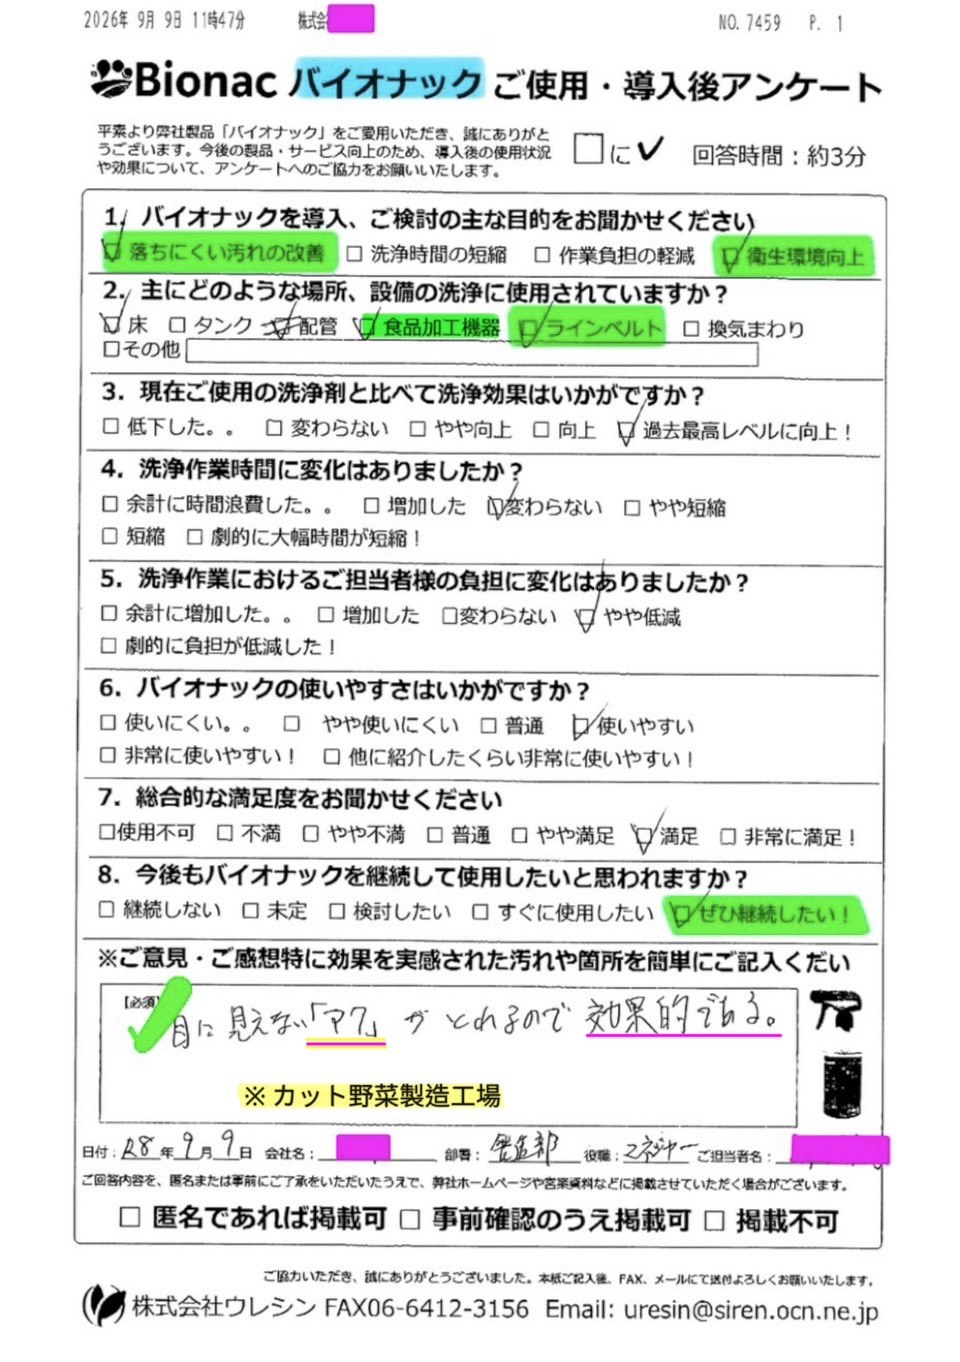 2026年 9月 9日 11時47分 株式会 NO. 7459 P. 1
Bionac バイオナック ご使用・導入後アンケート
平素より弊社製品「バイオナック」をご愛用いただき、誠にありがと
うございます。今後の製品・サービス向上のため、導入後の使用状況
や効果について、アンケートへのご協力をお願いいたします。
□に✔ 回答時間：約3分
1. バイオナックを導入、ご検討の主な目的をお聞かせください
☑ 落ちにくい汚れの改善 □ 洗浄時間の短縮 □ 作業負担の軽減 ☑ 衛生環境向上
2. 主にどのような場所、設備の洗浄に使用されていますか？
☑ 床 □ タンク ☑ 配管 ☑ 食品加工機器 ☑ ラインベルト □ 換気まわり
□その他
3. 現在ご使用の洗浄剤と比べて洗浄効果はいかがですか？
□ 低下した。。 □ 変わらない □ やや向上 □ 向上 ☑ 過去最高レベルに向上！
4. 洗浄作業時間に変化はありましたか？
□ 余計に時間浪費した。。 □ 増加した ☑変わらない □ やや短縮
□ 短縮 □ 劇的に大幅時間が短縮！
5. 洗浄作業におけるご担当者様の負担に変化はありましたか？
□ 余計に増加した。。 □ 増加した □変わらない ☑ やや低減
□ 劇的に負担が低減した！
6. バイオナックの使いやすさはいかがですか？
□ 使いにくい。。 □ やや使いにくい □ 普通 ☑ 使いやすい
□ 非常に使いやすい！ □ 他に紹介したくらい非常に使いやすい！
7. 総合的な満足度をお聞かせください
□使用不可 □ 不満 □ やや不満 □ 普通 □ やや満足 ☑ 満足 □ 非常に満足！
8. 今後もバイオナックを継続して使用したいと思われますか？
□ 継続しない □ 未定 □ 検討したい □ すぐに使用したい ☑ ぜひ継続したい！
※ご意見・ご感想特に効果を実感された汚れや箇所を簡単にご記入くだい
【必須】
目に見えない「アク」がとれるので効果的である。
※ カット野菜製造工場
日付：R8年 9月 9日 会社名： 部署：製造部 役職：マネジャー ご担当者名：
ご回答内容を、匿名または事前にご了承をいただいたうえで、弊社ホームページや営業資料などに掲載させていただく場合がございます。
□ 匿名であれば掲載可 □ 事前確認のうえ掲載可 □ 掲載不可
ご協力いただき、誠にありがとうございました。本紙ご記入後、FAX、メールにて送付よろしくお願いいたします。
株式会社ウレシン FAX06-6412-3156 Email: uresin@siren.ocn.ne.jp